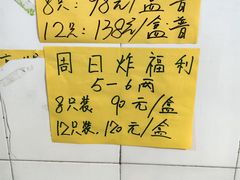 8只: 98元/盒普
12只: 138元/盒普
周日炸福利
5-6两
8只装 90元/盒
12只装. 120元/盒